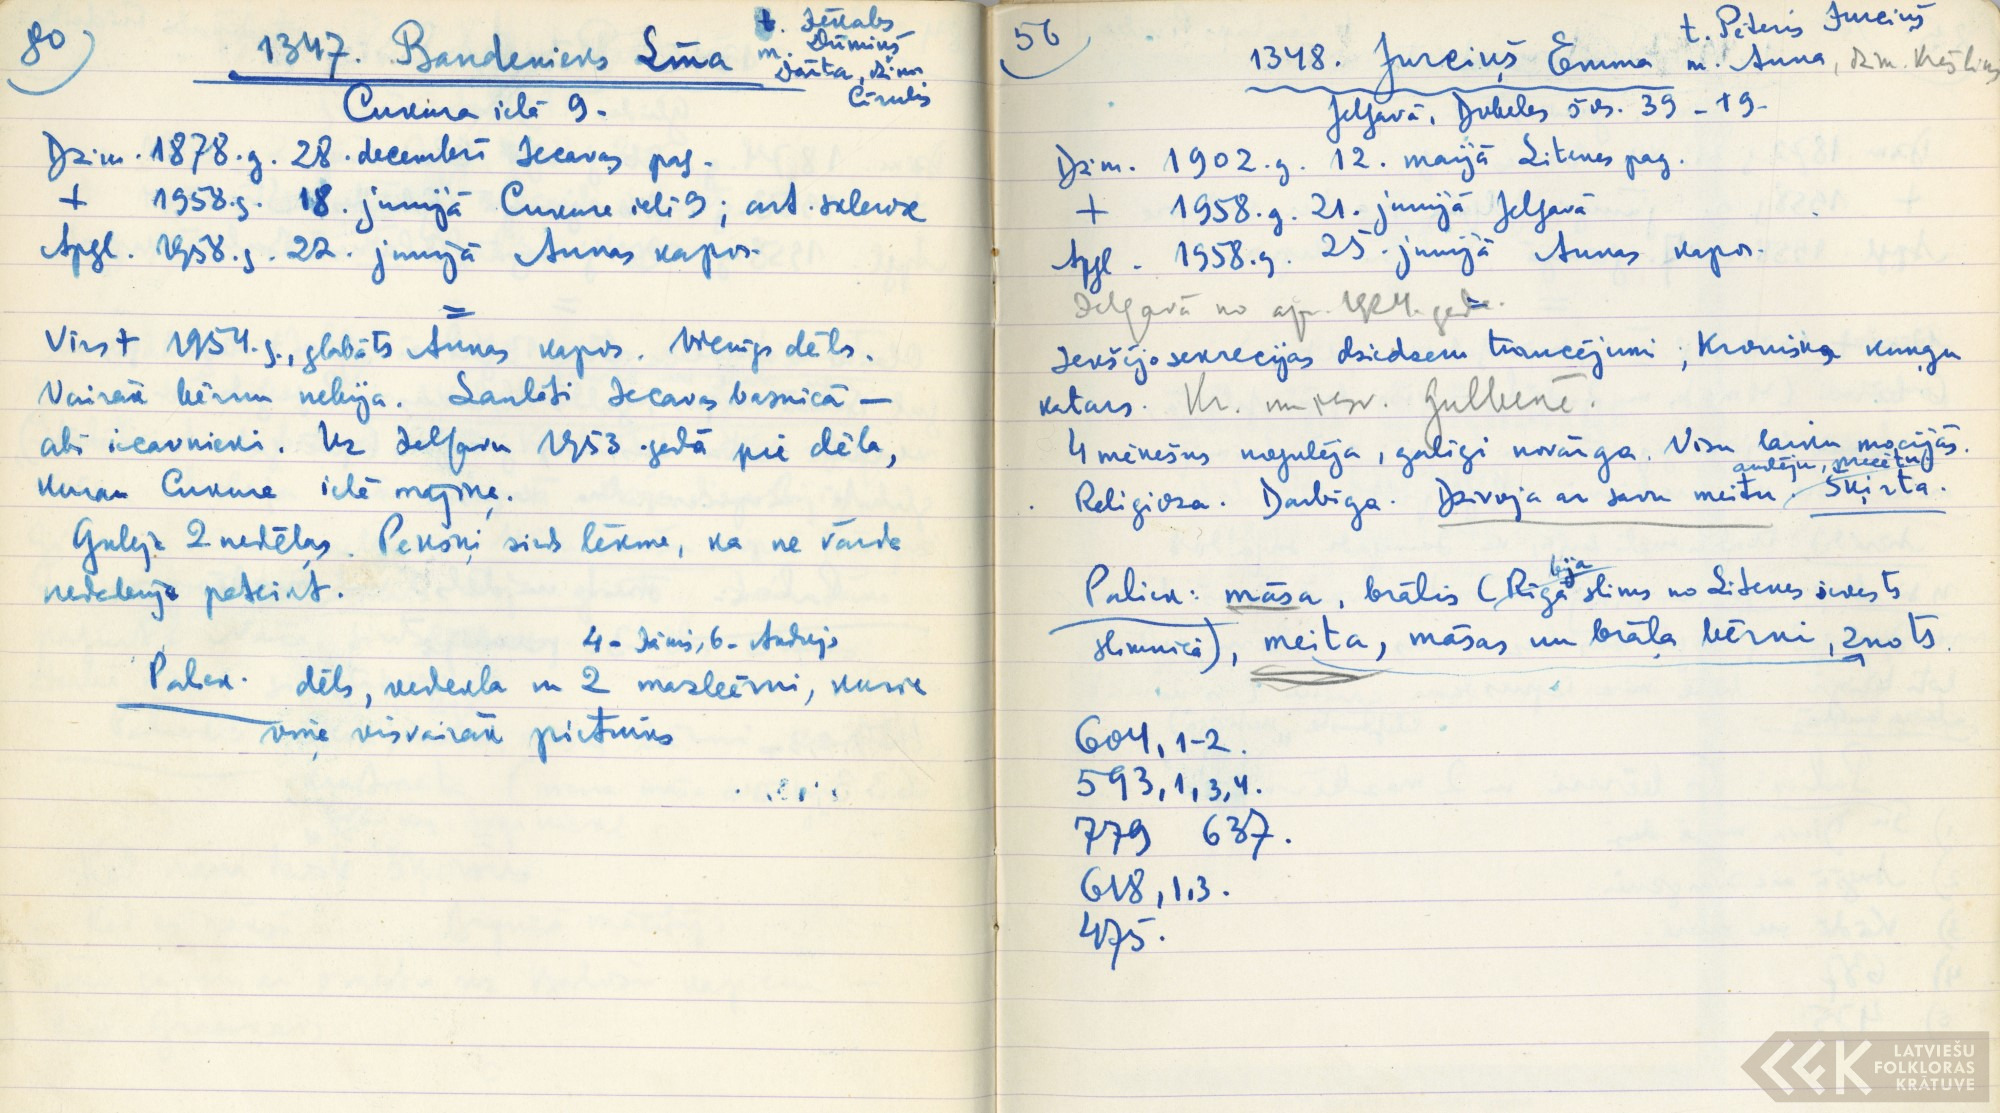 80
t. Jēkabs
m. Dūmiņš
Dārta, dzim.
Cīrulis
1347. Bandenieks Līna
Cukura ielā 9.
Dzim. 1878.g. 28. decembrī Iecavas pag.
+ 1958.g. 18. jūnijā Cukura ielā 9; art. skleroze
Apgl. 1958.g. 22. jūnijā Annas kapos.
=
Vīrs + 1954.g., glabāts Annas kapos. Vienīgs dēls.
Vairāk bērnu nebija. Laulāti Iecavas baznīcā –
abi iecavnieki. Uz Jelgavu 1953. gadā pie dēla,
kuram Cukura ielā mājiņa.
Guleja 2 nedēļas. Pēkšņi sirds lēkme, ka ne vārda
nedabūja pateikt.
4 - Jānis, 6 - Andrejs
Paliek. dēls, vedekla un 2 mazbērni, kurie
viņai visvairāk pietrūks
56
t. Pēteris Jurciņš
1348. Jurciņš Emma m. Anna, dzim. Krēsliņš
Jelgavā, Dobeles šos. 39 - 19.
Dzim. 1902.g. 12. maijā Litenes pag.
+ 1958.g. 21. jūnijā Jelgavā
Apgl. 1958.g. 25. jūnijā Annas kapos.
Jelgavā no apr. 1924. gada.
Iekšējo sekrecijas dziedzeru traucējumi; Kroniska kuņģa
katars. Kr. un Gulbenē.
4 mēnešus nogulēja, galīgi novārga. Visu laiku mocījās.
audēju,
Religioza. Darbīga. Dzīvoja ar savu meitu, šķirta.
bija
Paliek: māsa, brālis (Rīgā slims no Litenes ievests
slimnīcā), meita, māsas un brāļa bērni, znots.
604, 1-2.
593, 1, 3, 4.
779 637.
618, 1, 3.
475.
LATVIEŠU
FOLKLORAS
KRĀTUVE